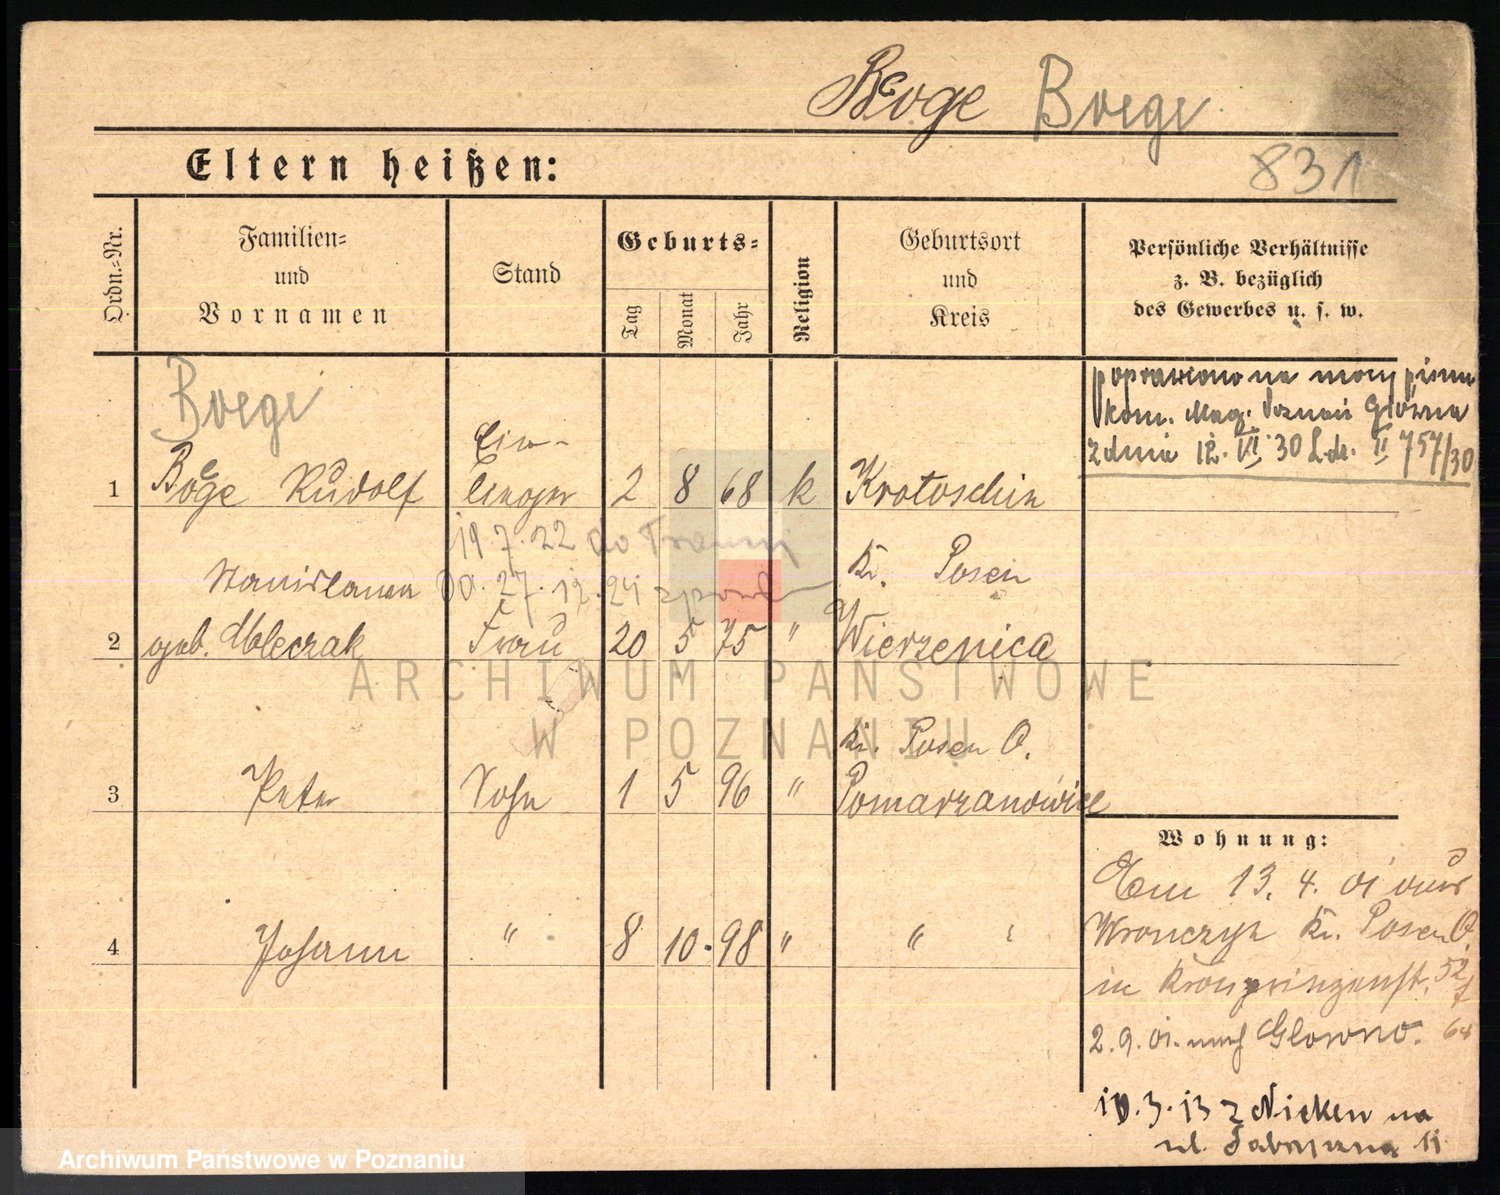 Boege Boege
Eltern heißen:
831
Ordn.=Nr.
Familien=
und
Vornamen
Stand
Geburts=
Tag
Monat
Jahr
Religion
Geburtsort
und
Kreis
Persönliche Verhältnisse
z. B. bezüglich
des Gewerbes u. s. w.
poprawiono na mocy pisma
Kom. Mag. Poznań Główna
z dnia 12. VI. 30 L.dz. II 757/30
Boege
1 Boege Rudolf 2 8 68 k Krotoschin
19.7.22 do Francji
Kr. Posen
Stanislawa
27.12.24
2 geb. Mleczak Frau 20 5 75 " Wierzenica
Kr. Posen O.
3 Peter Sohn 1 5 96 " Pomarzanowice
4 Johann " 8 10. 98 " "
Wohnung:
13. 4. 01 aus
Wronczyn Kr. Posen O.
in Kronprinzenst. 52
2. 9. 01. nach Glowno. 64
10.3.13 z Nicken na
ul.
11
ARCHIWUM PAŃSTWOWE
W POZNANIU
Archiwum Państwowe w Poznaniu